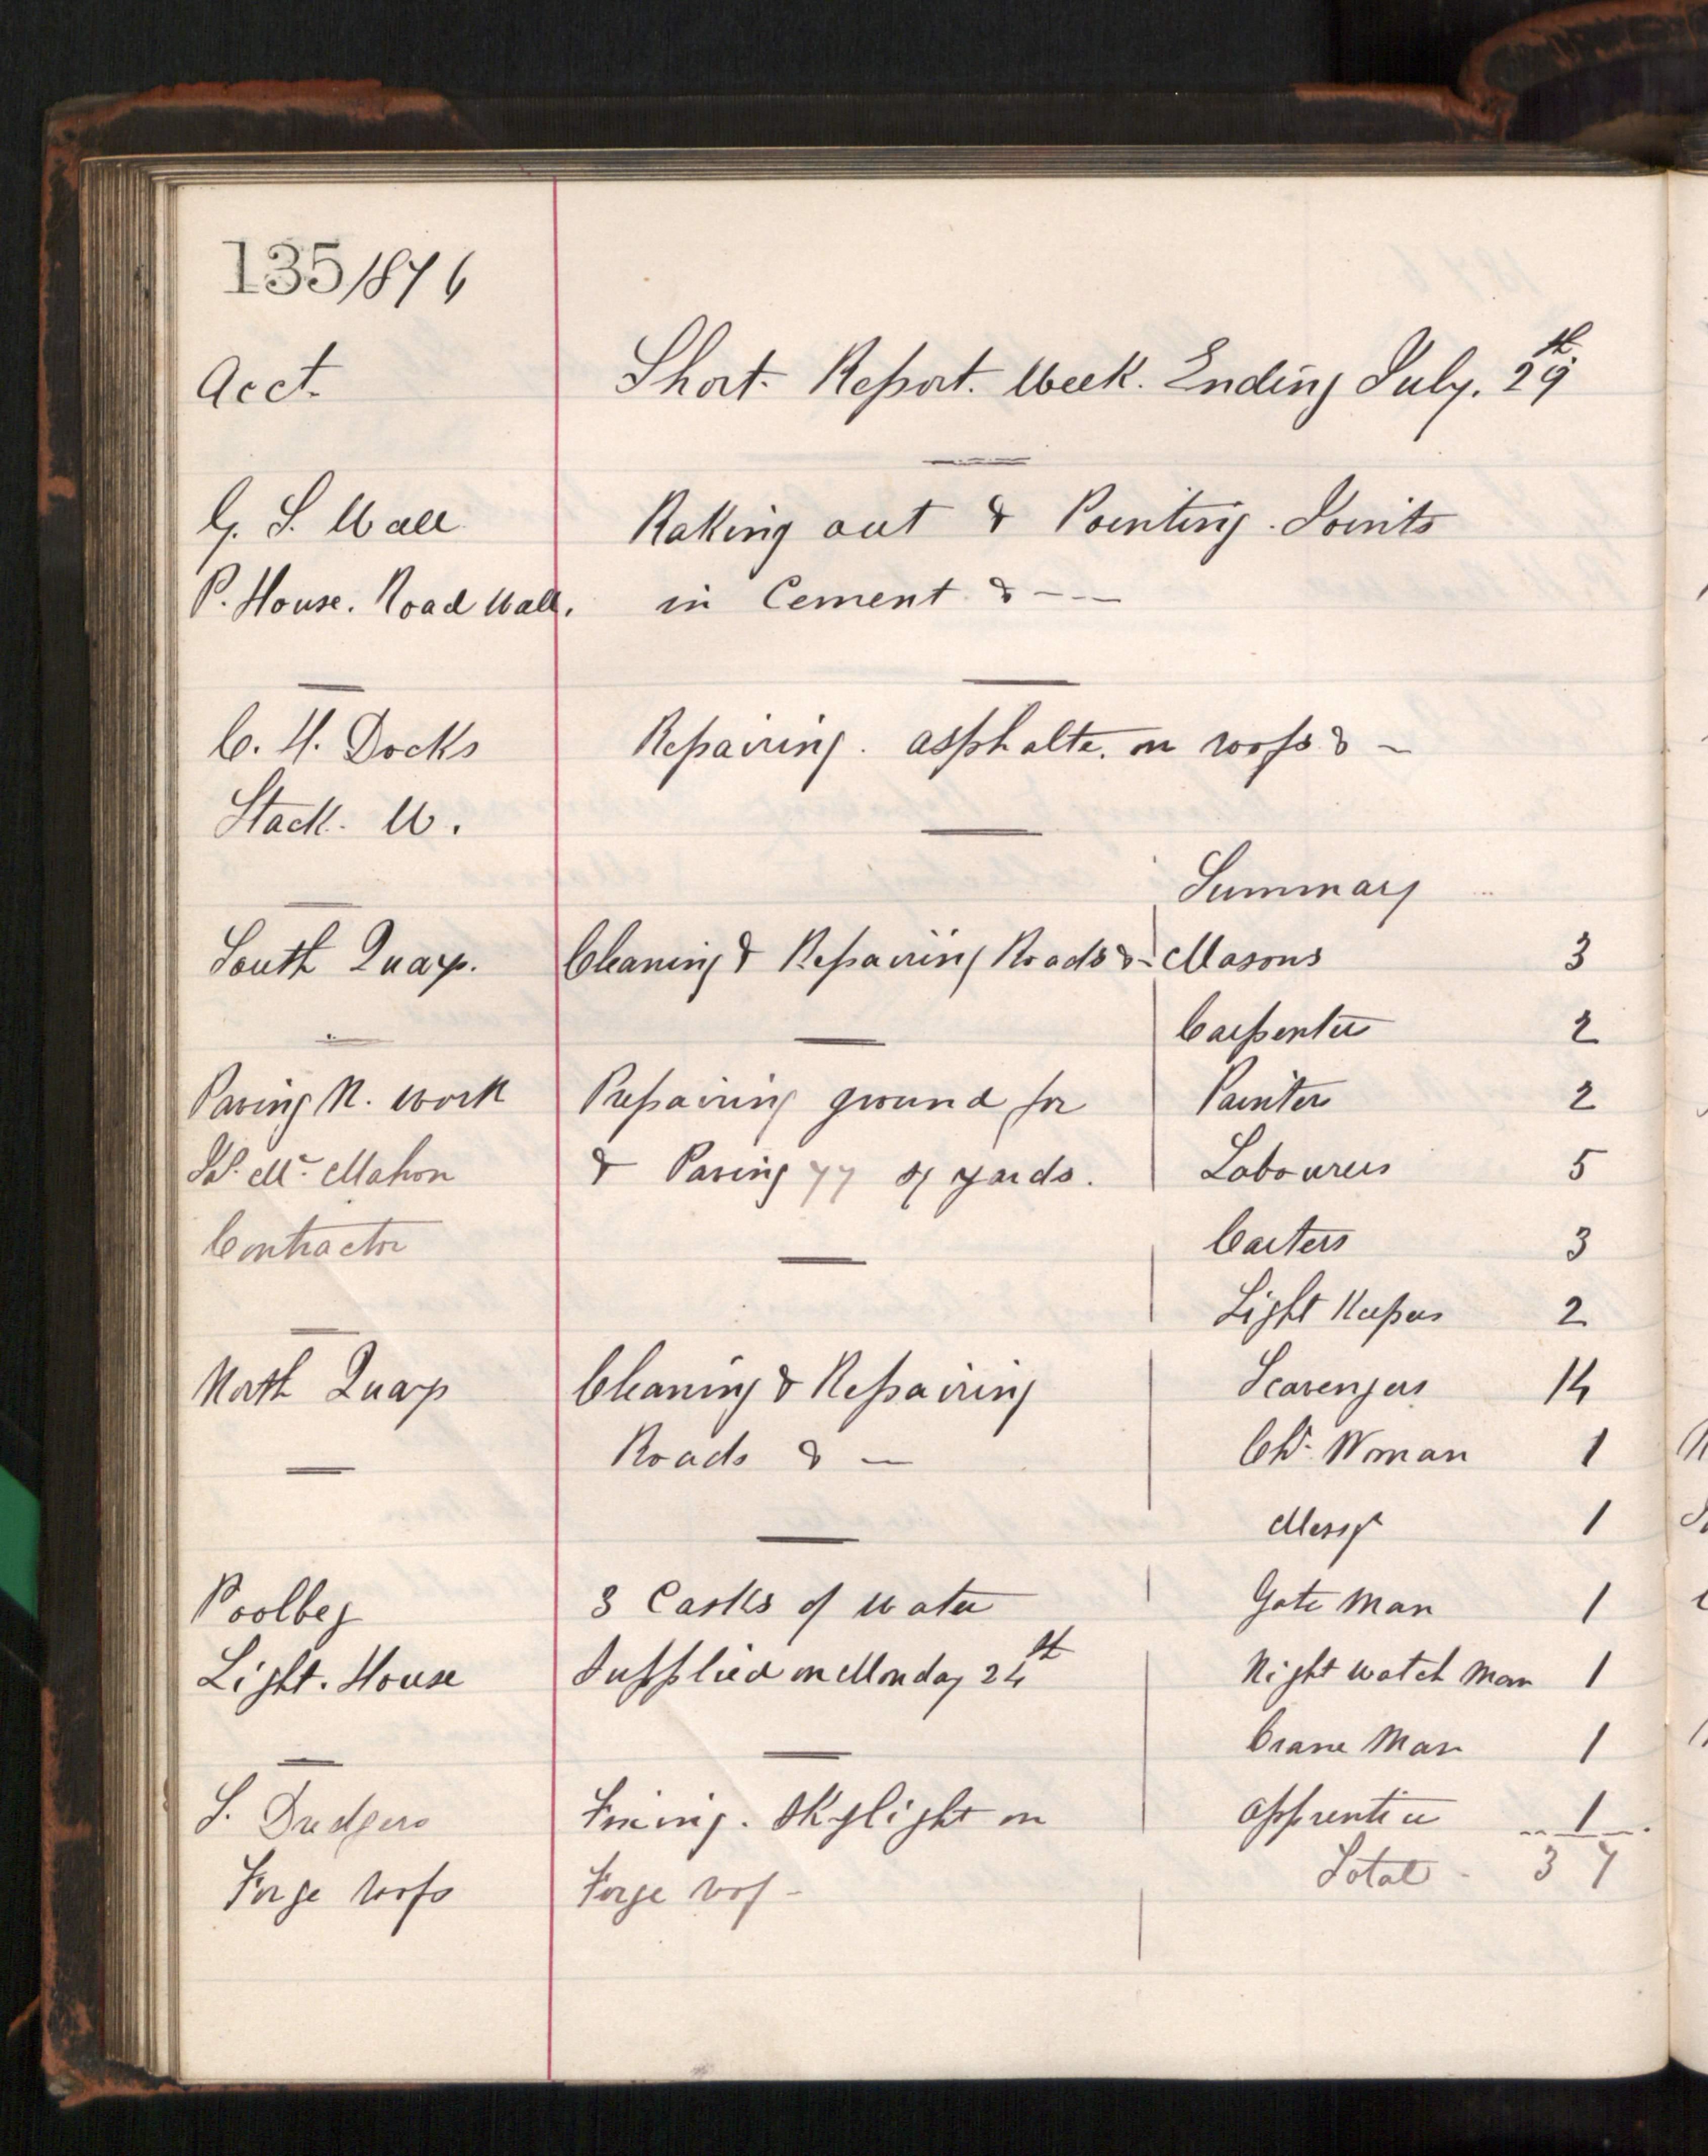 135/1876
Acct.
Short Report. Week. Ending July. 29th
G. S. Wall
Raking out & Pointing. Joints
P. House. Road Wall.
in Cement & - - -
C. H. Docks
Repairing. asphalte. on roofs & -
Stack. W.
Summary
South Quay.
Cleaning & Repairing Roads & -
Masons 3
Carpenters 2
Paving N. work
Prepairing ground for
Painters 2
Mc. Mahon
& Paving 77 sq yards.
Labourers 5
Contractor
Carters 3
Light Keepers 2
North Quay
Cleaning & Repairing
Scavengers 14
Roads & -
Woman 1
Messgr 1
Poolbeg
3 Casks of water
Gate Man 1
Light. House
Supplied on Monday 24th
Night watch Man 1
Crane Man 1
S. Dredgers
Fixing. Skylight on
apprentice 1
Forge roofs
Forge roof -
Total - 37